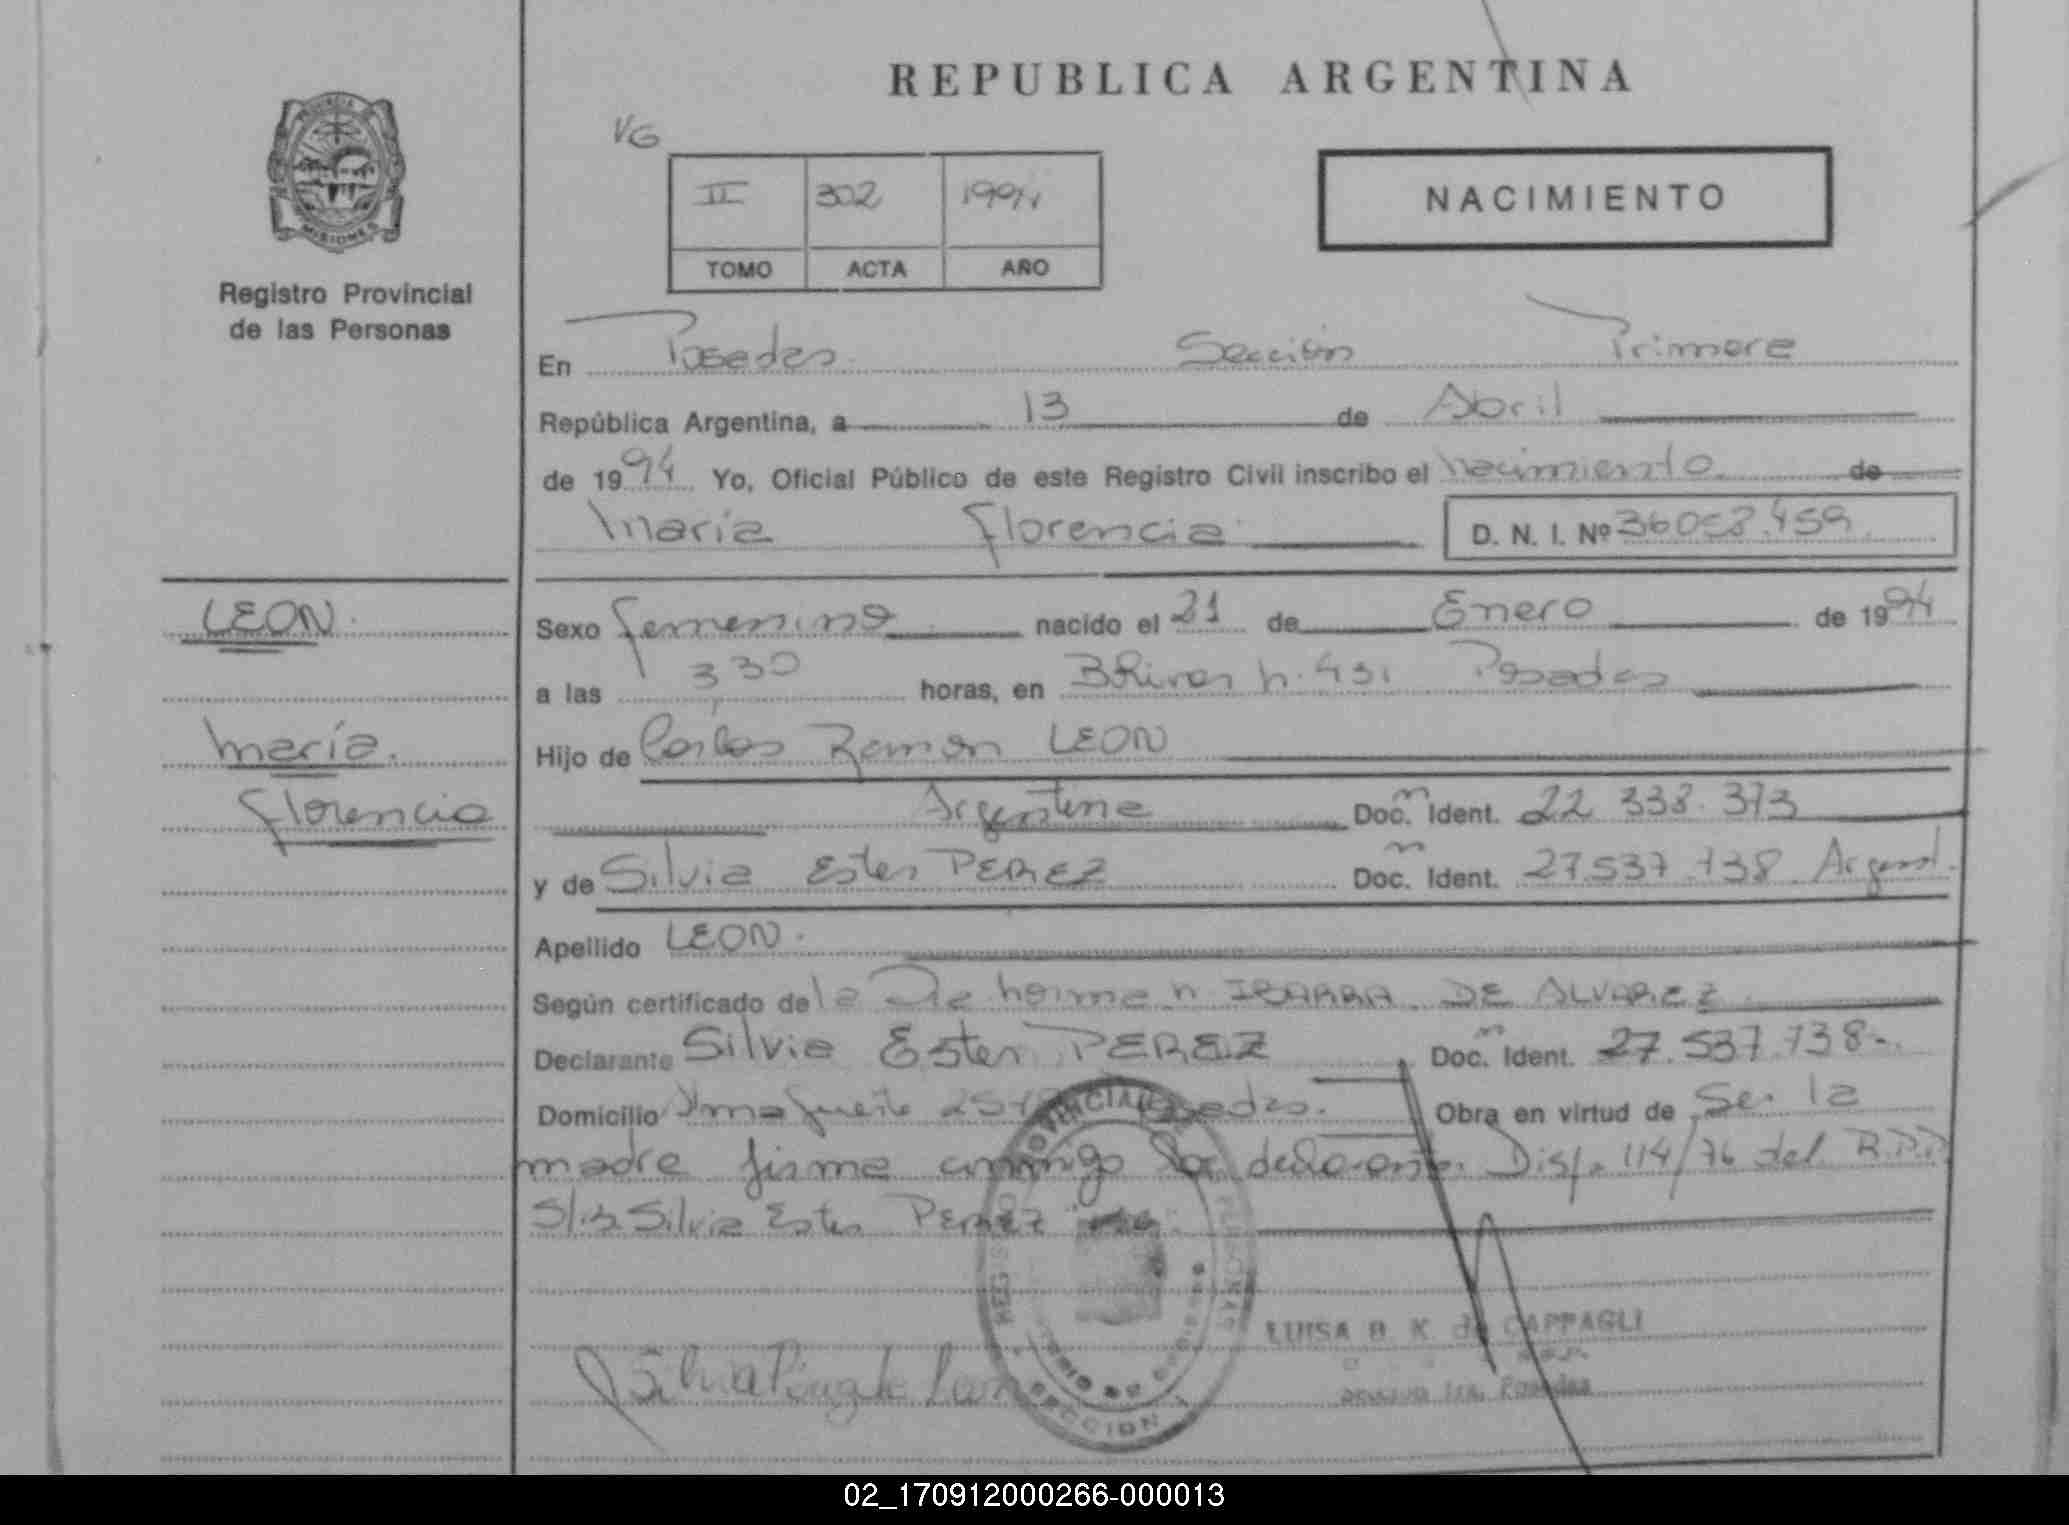 REPUBLICA ARGENTINA
VG
II 302 1994
TOMO ACTA AÑO
NACIMIENTO
MISIONES
Registro Provincial
de las Personas
En Posadas Sección Primera
República Argentina, a 13 de Abril
de 1994 Yo, Oficial Público de este Registro Civil inscribo el nacimiento de
María Florencia D. N. I. Nº 36058.459
LEON.
María.
Florencia
Sexo femenino nacido el 21 de Enero de 1994
a las 3,30 horas, en Bolivar n. 431 Posadas
Hijo de Carlos Ramon LEON
Argentina Doc. Ident. 22 338.373
y de Silvia Ester PEREZ Doc. Ident. 27.537.738 Argent.
Apellido LEON.
Según certificado de la Dra IBARRA DE ALVAREZ
Declarante Silvia Ester PEREZ Doc. Ident. 27.537.738-.
Domicilio Posadas. Obra en virtud de Ser la
madre firma conmigo la declarante. Disp. 114/76 del R.P.P.
S/.B. Silvia Ester PEREZ
LUISA B. K. de CAPPAGLI
REGISTRO PROVINCIAL
SECCION 1
02_170912000266-000013